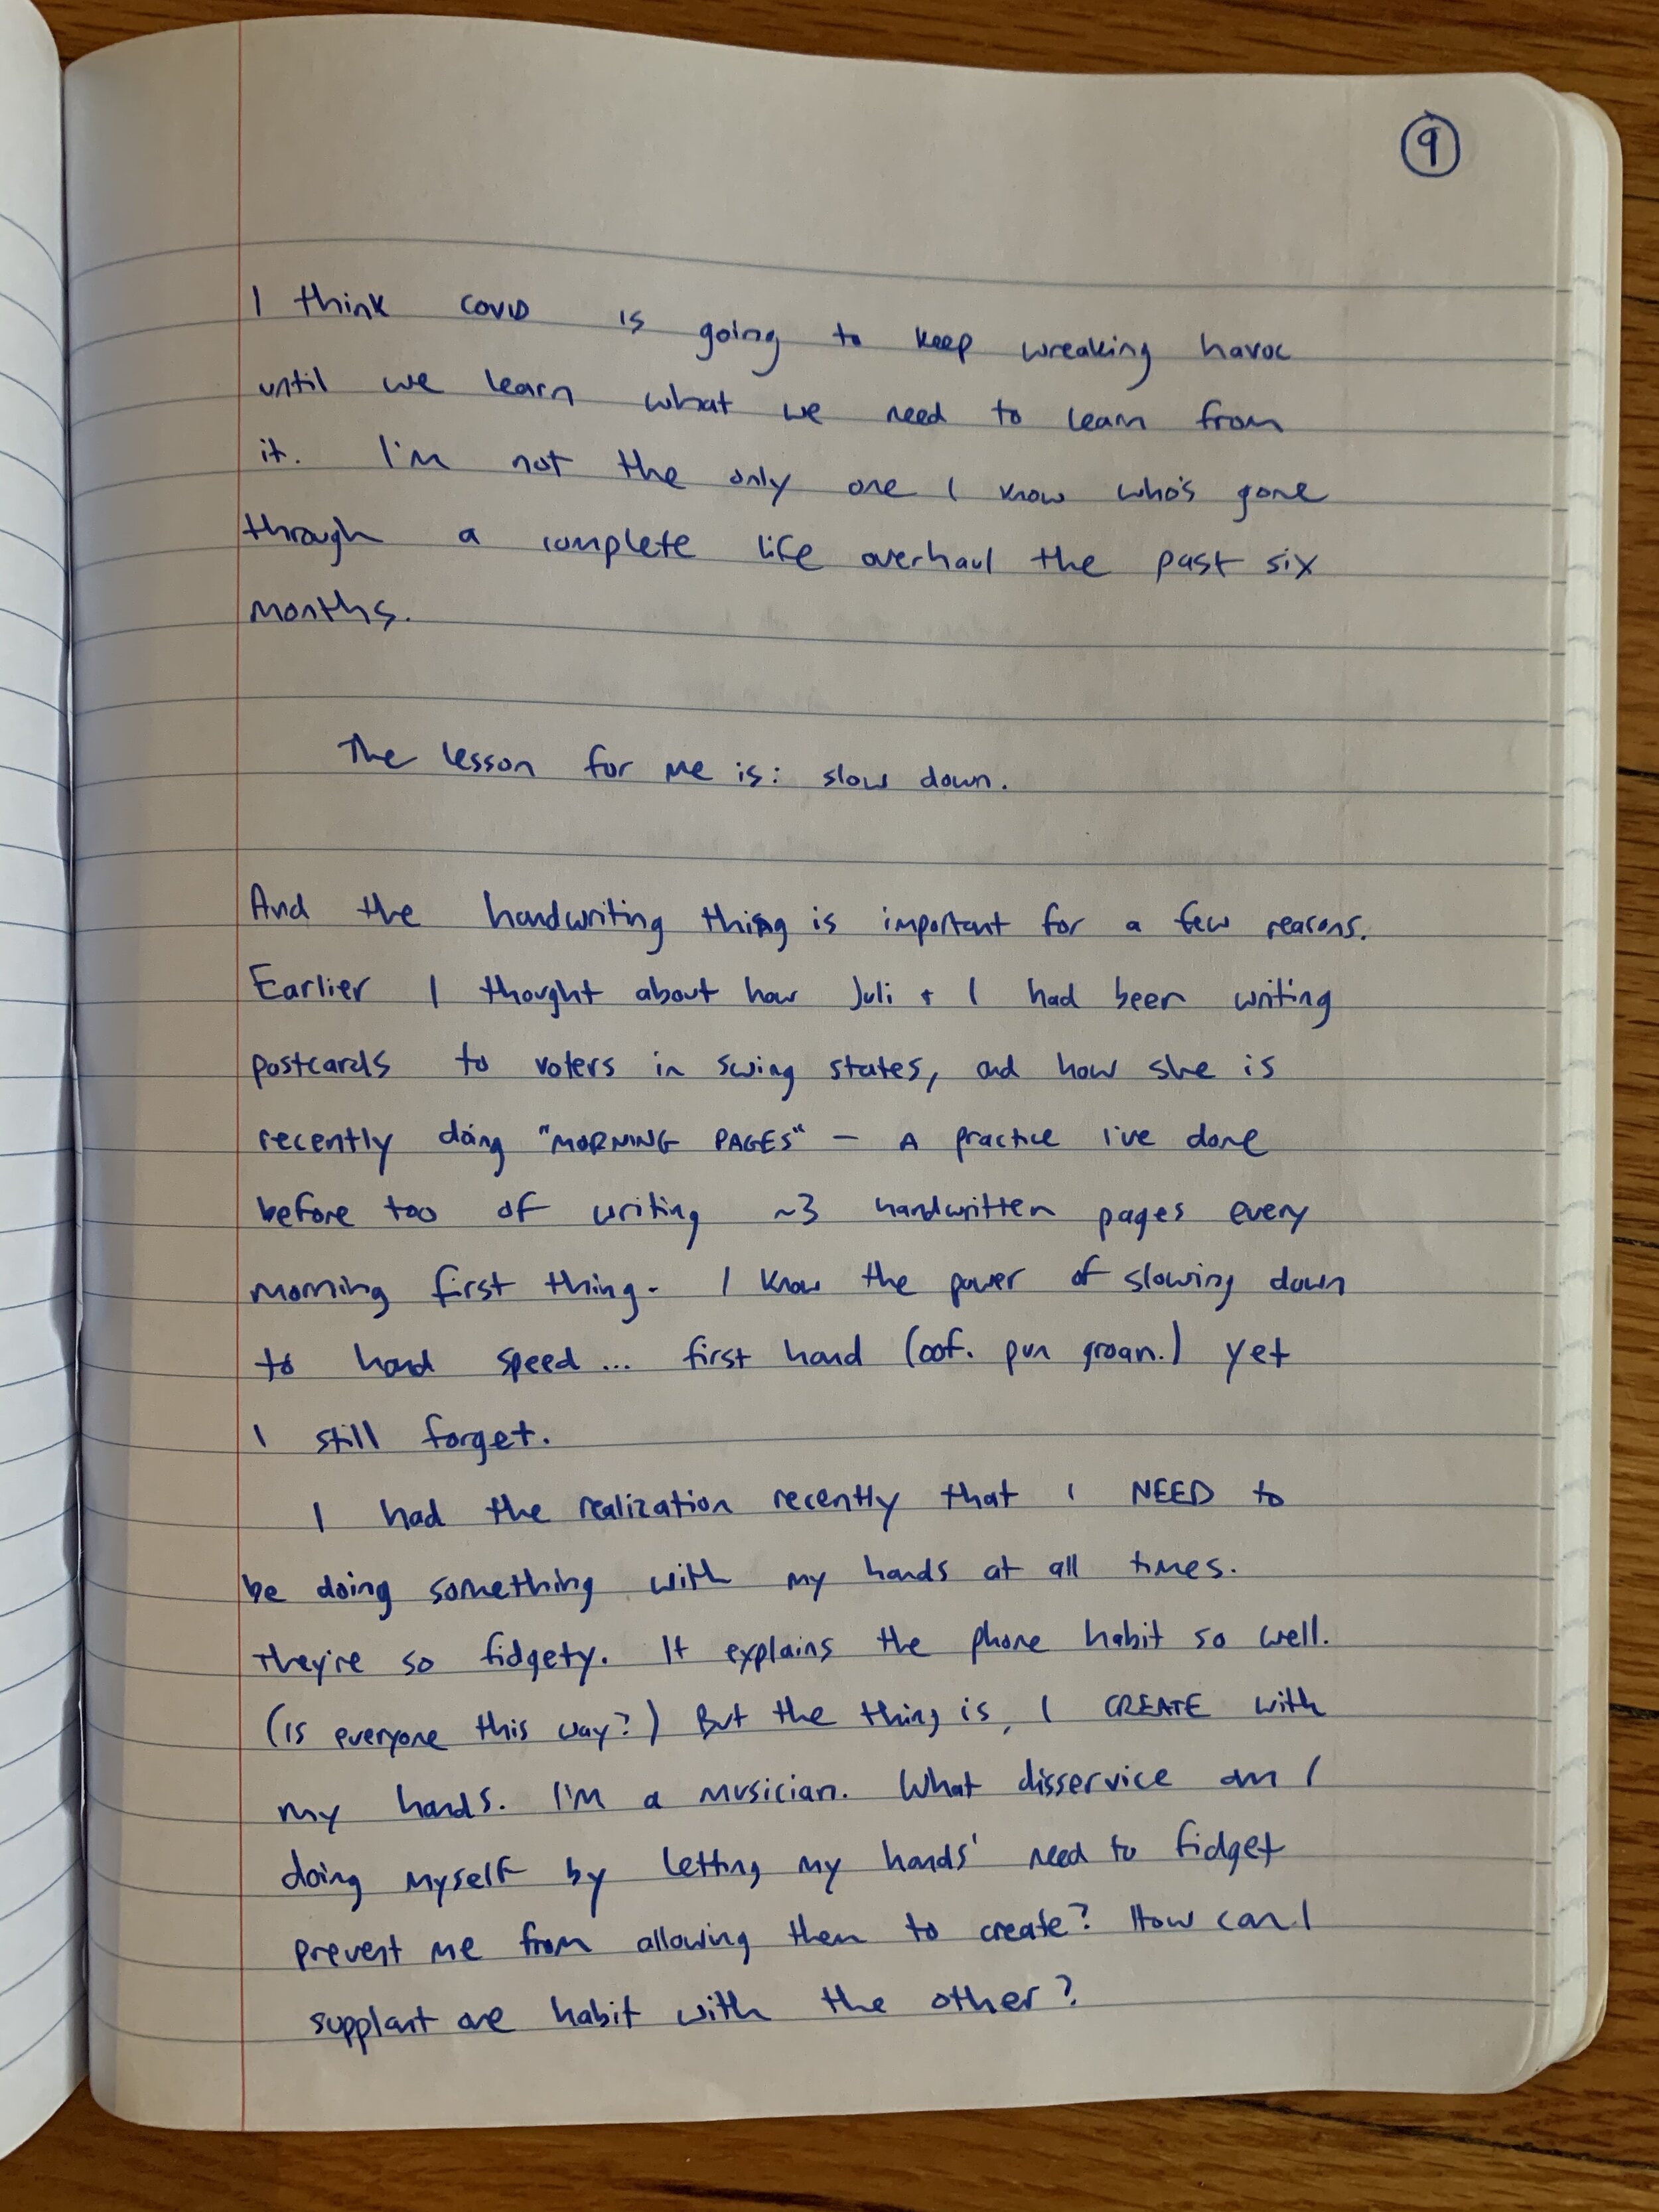 9
I think COVID is going to keep wreaking havoc
until we learn what we need to learn from
it. I'm not the only one I know who's gone
through a complete life overhaul the past six
months.
The lesson for me is: slow down.
And the handwriting thing is important for a few reasons.
Earlier I thought about how Juli + I had been writing
postcards to voters in swing states, and how she is
recently doing "MORNING PAGES" — A practice I've done
before too of writing ~3 handwritten pages every
morning first thing. I know the power of slowing down
to hand speed... first hand (oof. pun groan.) yet
I still forget.
I had the realization recently that I NEED to
be doing something with my hands at all times.
They're so fidgety. It explains the phone habit so well.
(Is everyone this way?) But the thing is, I CREATE with
my hands. I'm a musician. What disservice am I
doing myself by letting my hands' need to fidget
prevent me from allowing them to create? How can I
supplant one habit with the other?